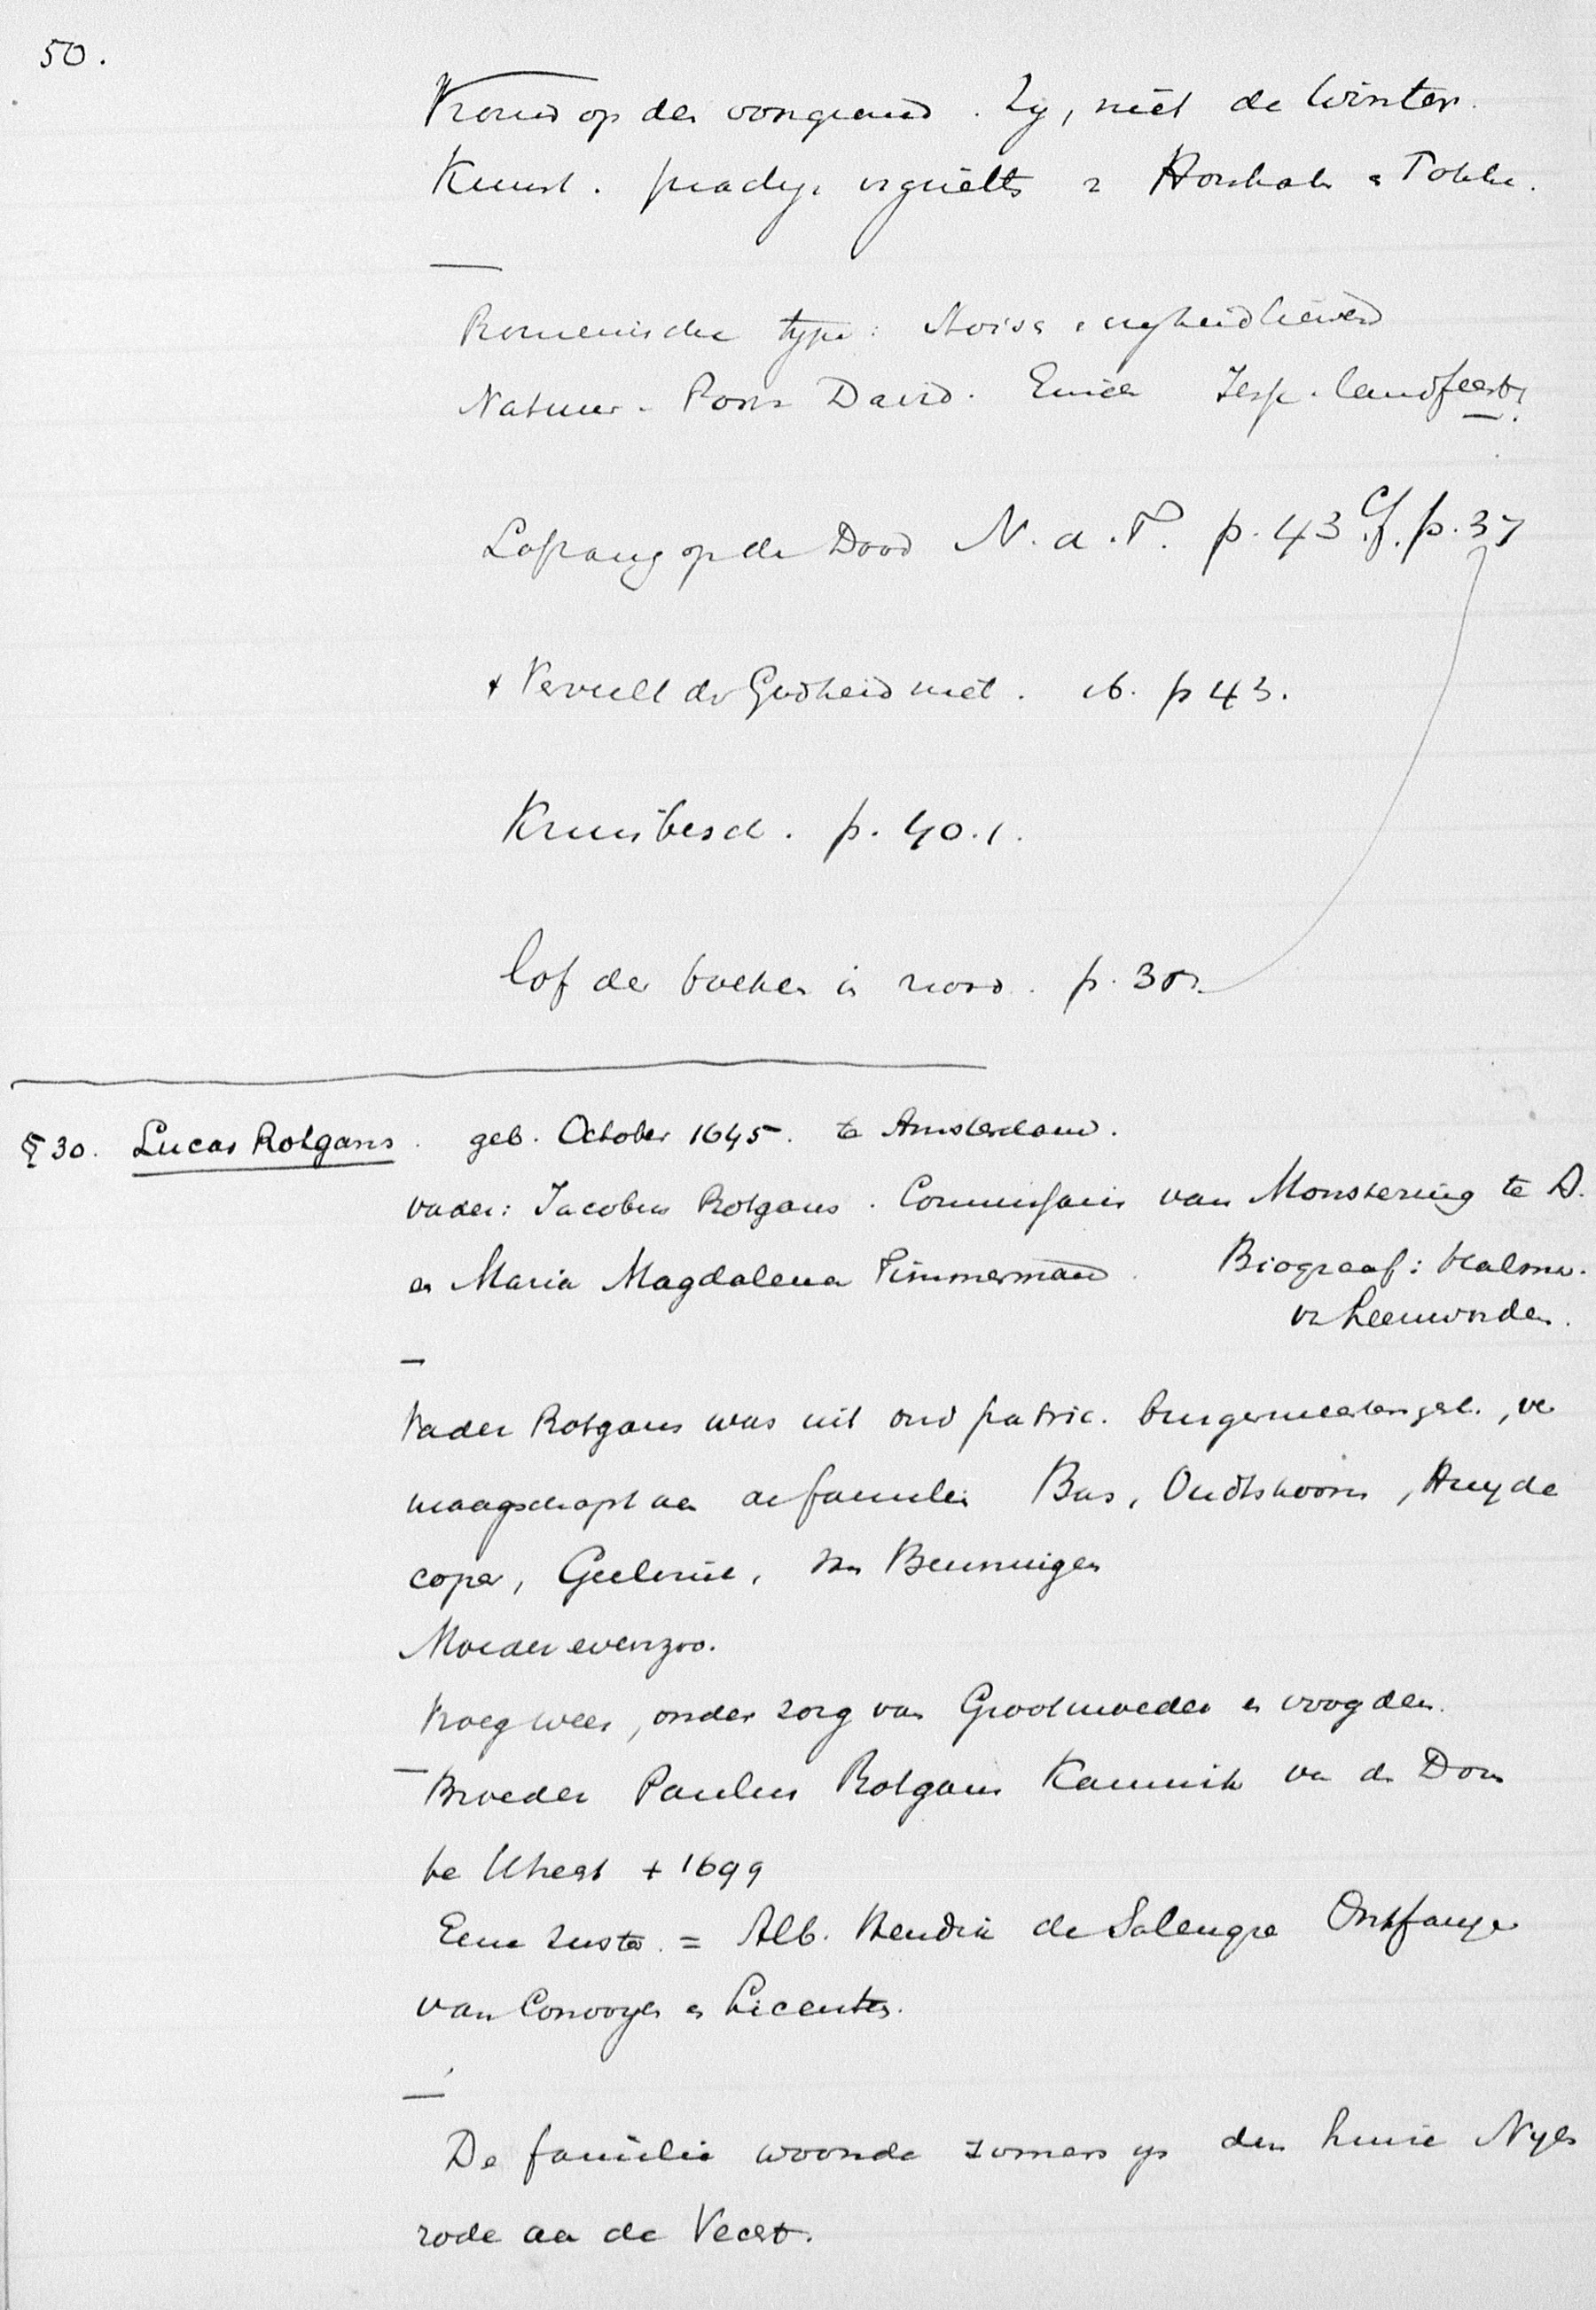 50.
Vrouw op den voorgrond. Zy, niet de Winter.
Kunst. prachtige vignetten Houbak Fokke.
Romeinsche type: vryheidlievend
Natuur. David. landfeest
Lofzang op de Dood N. a. T. p. 43 Cf. p. 37
+ Verveelt de Godheid niet. ib. p 43.
Kruisbesch. p. 40.1.
Lof der boeken in nood. p. 30
§ 30. Lucas Rotgans. geb. October 1645. te Amsterdam.
vader: Jacobus Rotgans. Commissaris van Monstering te A.
en Maria Magdalena Timmerman. Biograaf: Halma.
v. Leeuwarden.
Vader Rotgans was uit oud patric. burgemeestergesl., ver
maagschapt aan de familie Bas, Oudtshoorn, Huyde
coper, Geelvinc, van Beuningen
Moeder evenzoo.
Vroeg wees, onder zorg van Grootmoeder en voogden.
Broeder Paulus Rotgans Kannunik van den Dom
te Utrecht + 1699
Eene zuster = Alb. Hendrik de Salengre Ontfanger
van Convoyen en Licenten.
De familie woonde zomers op den huize Nyen
rode aan de Vecht.